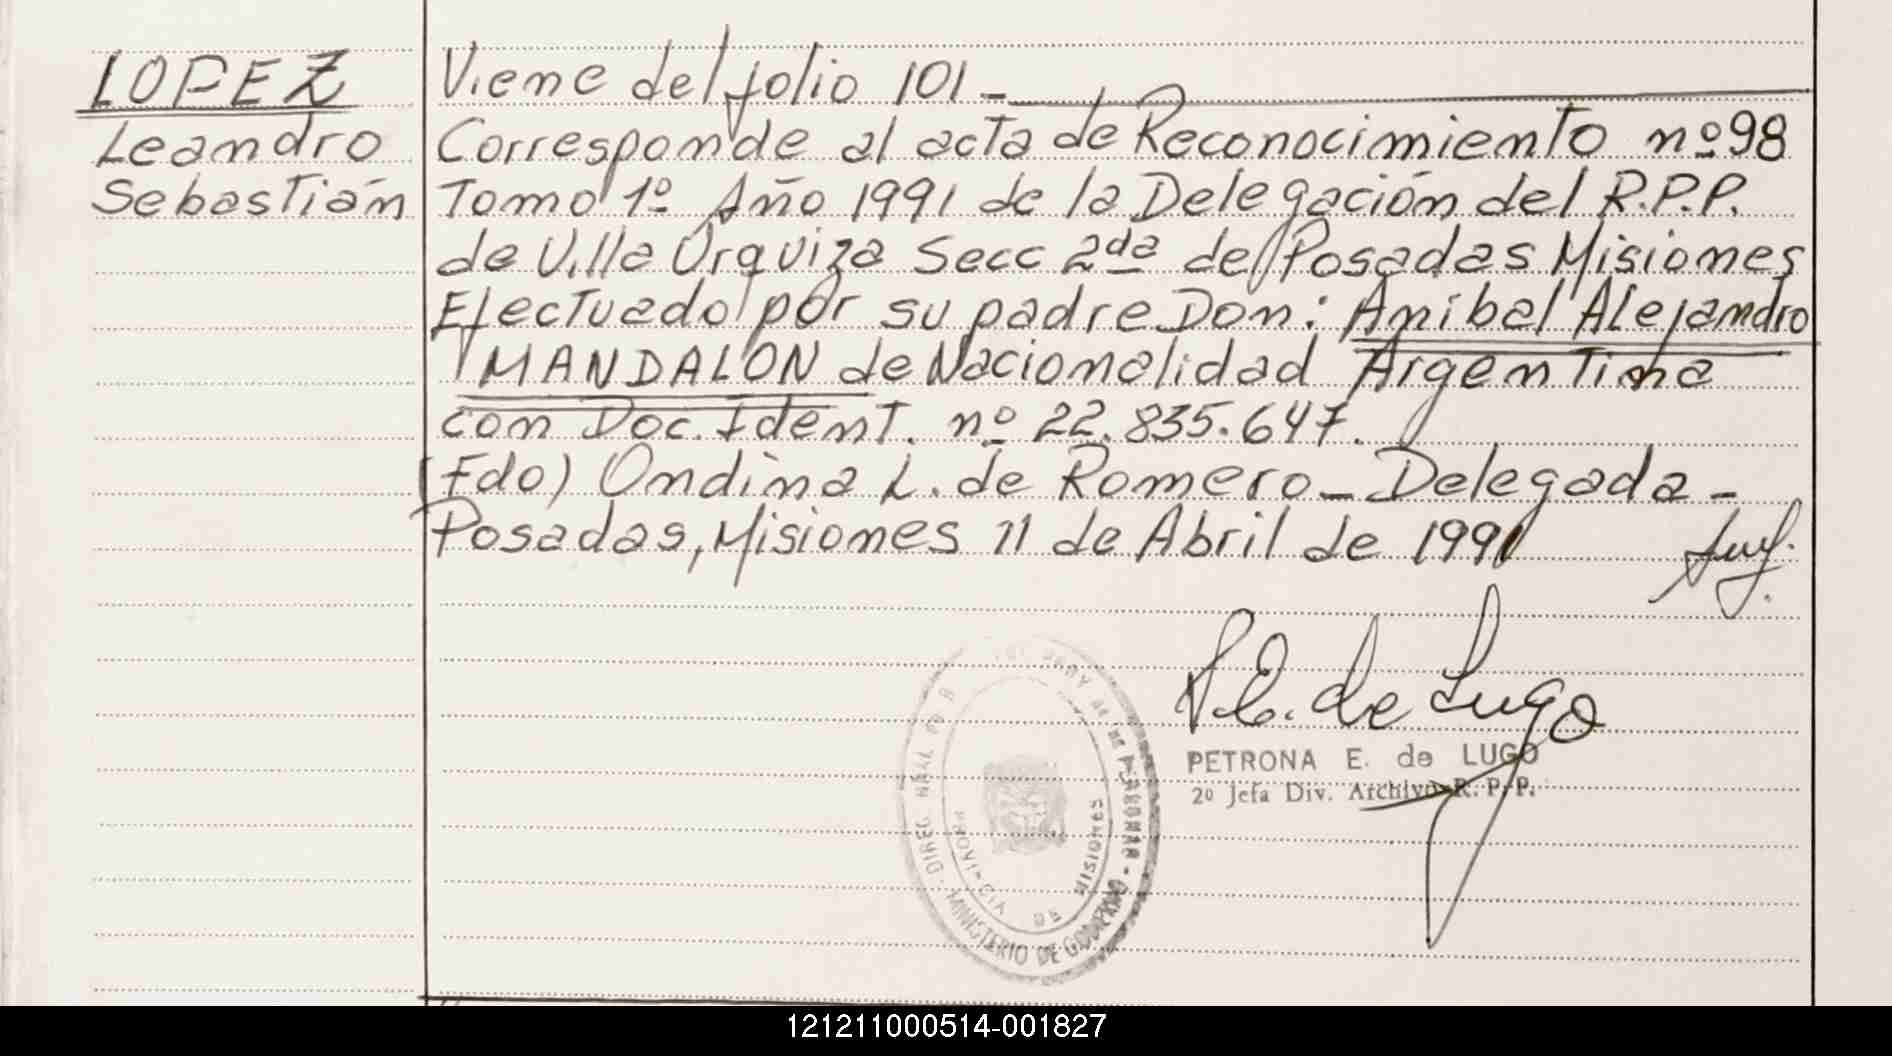 LOPEZ
Leandro
Sebastián
Viene del folio 101 -
Corresponde al acta de Reconocimiento nº 98
Tomo 1º Año 1991 de la Delegación del R.P.P.
de Villa Urquiza Secc 2da de Posadas Misiones
Efectuado por su padre Don: Anibal Alejandro
MANDALON de Nacionalidad Argentina
con Doc. Ident. nº 22.835.647.
(Fdo) Ondina L. de Romero - Delegada -
Posadas, Misiones 11 de Abril de 1991
P.E. de Lugo
PETRONA E. de LUGO
2º Jefa Div. Archivo R. P. P.
MINISTERIO DE GOBIERNO
PROVINCIA DE MISIONES
121211000514-001827